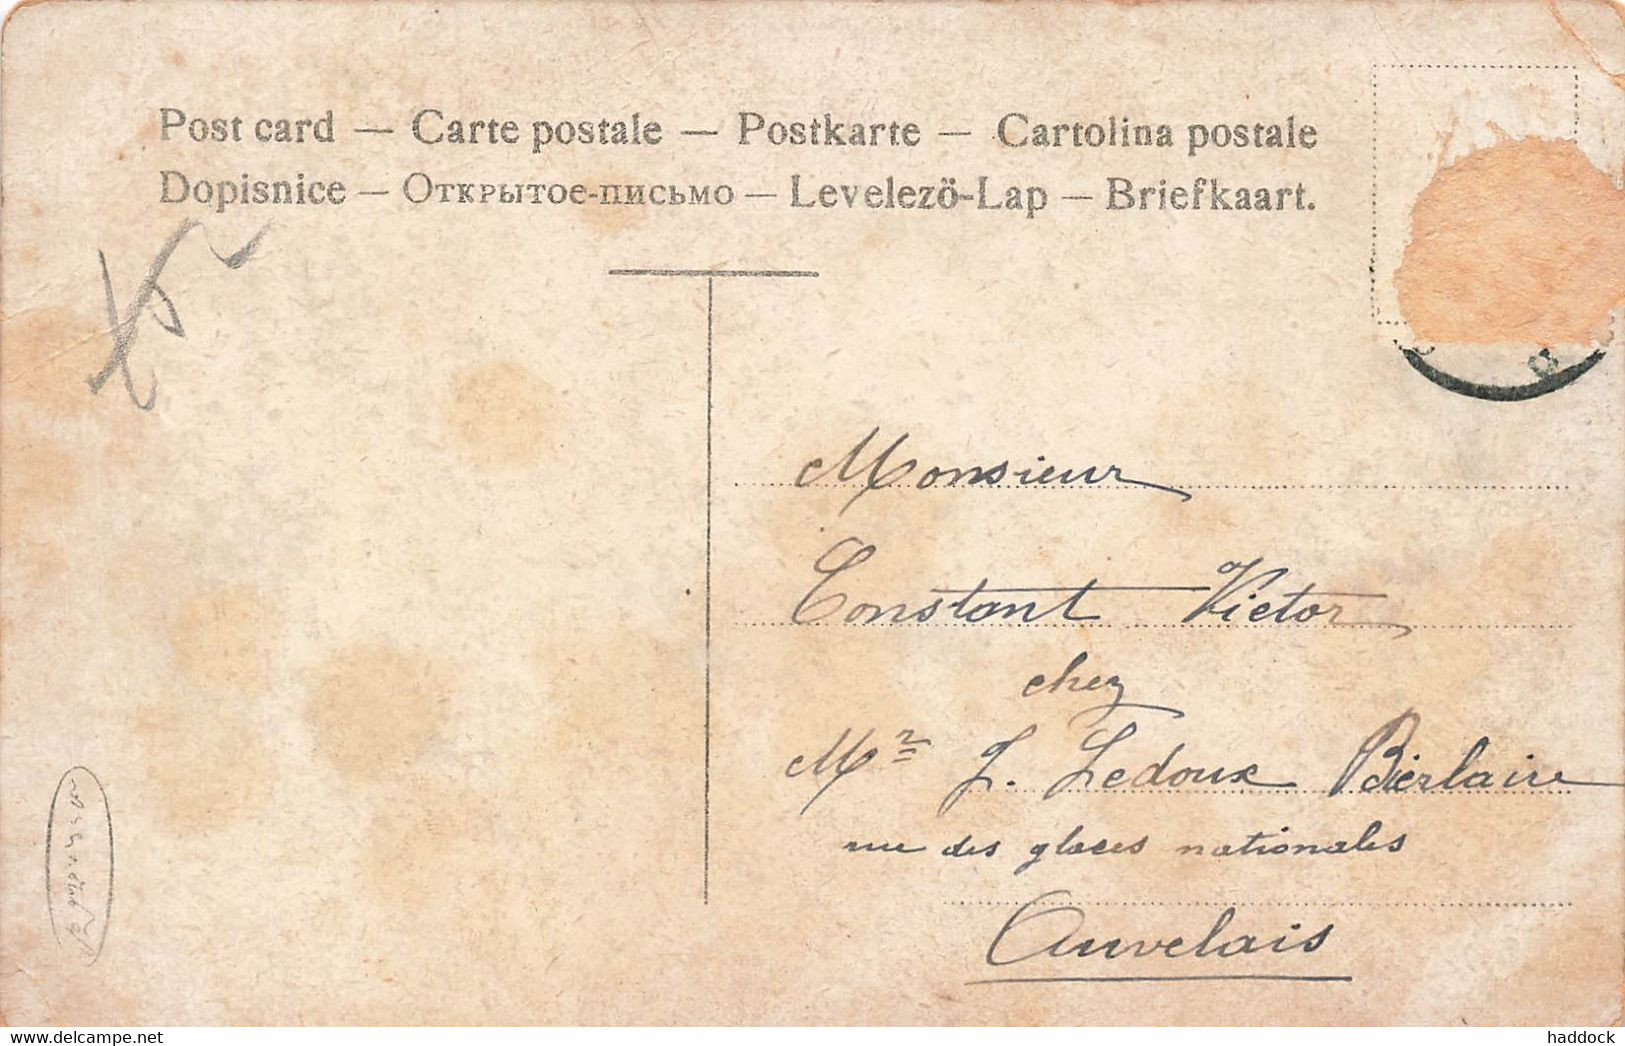 Post card — Carte postale — Postkarte — Cartolina postale
Dopisnice — Открытое-письмо — Levelezö-Lap — Briefkaart.
Monsieur
Constant Victor
chez
Mr J. Ledoux Bierlaire
rue des glaces nationales
Auvelais
www.delcampe.net
haddock